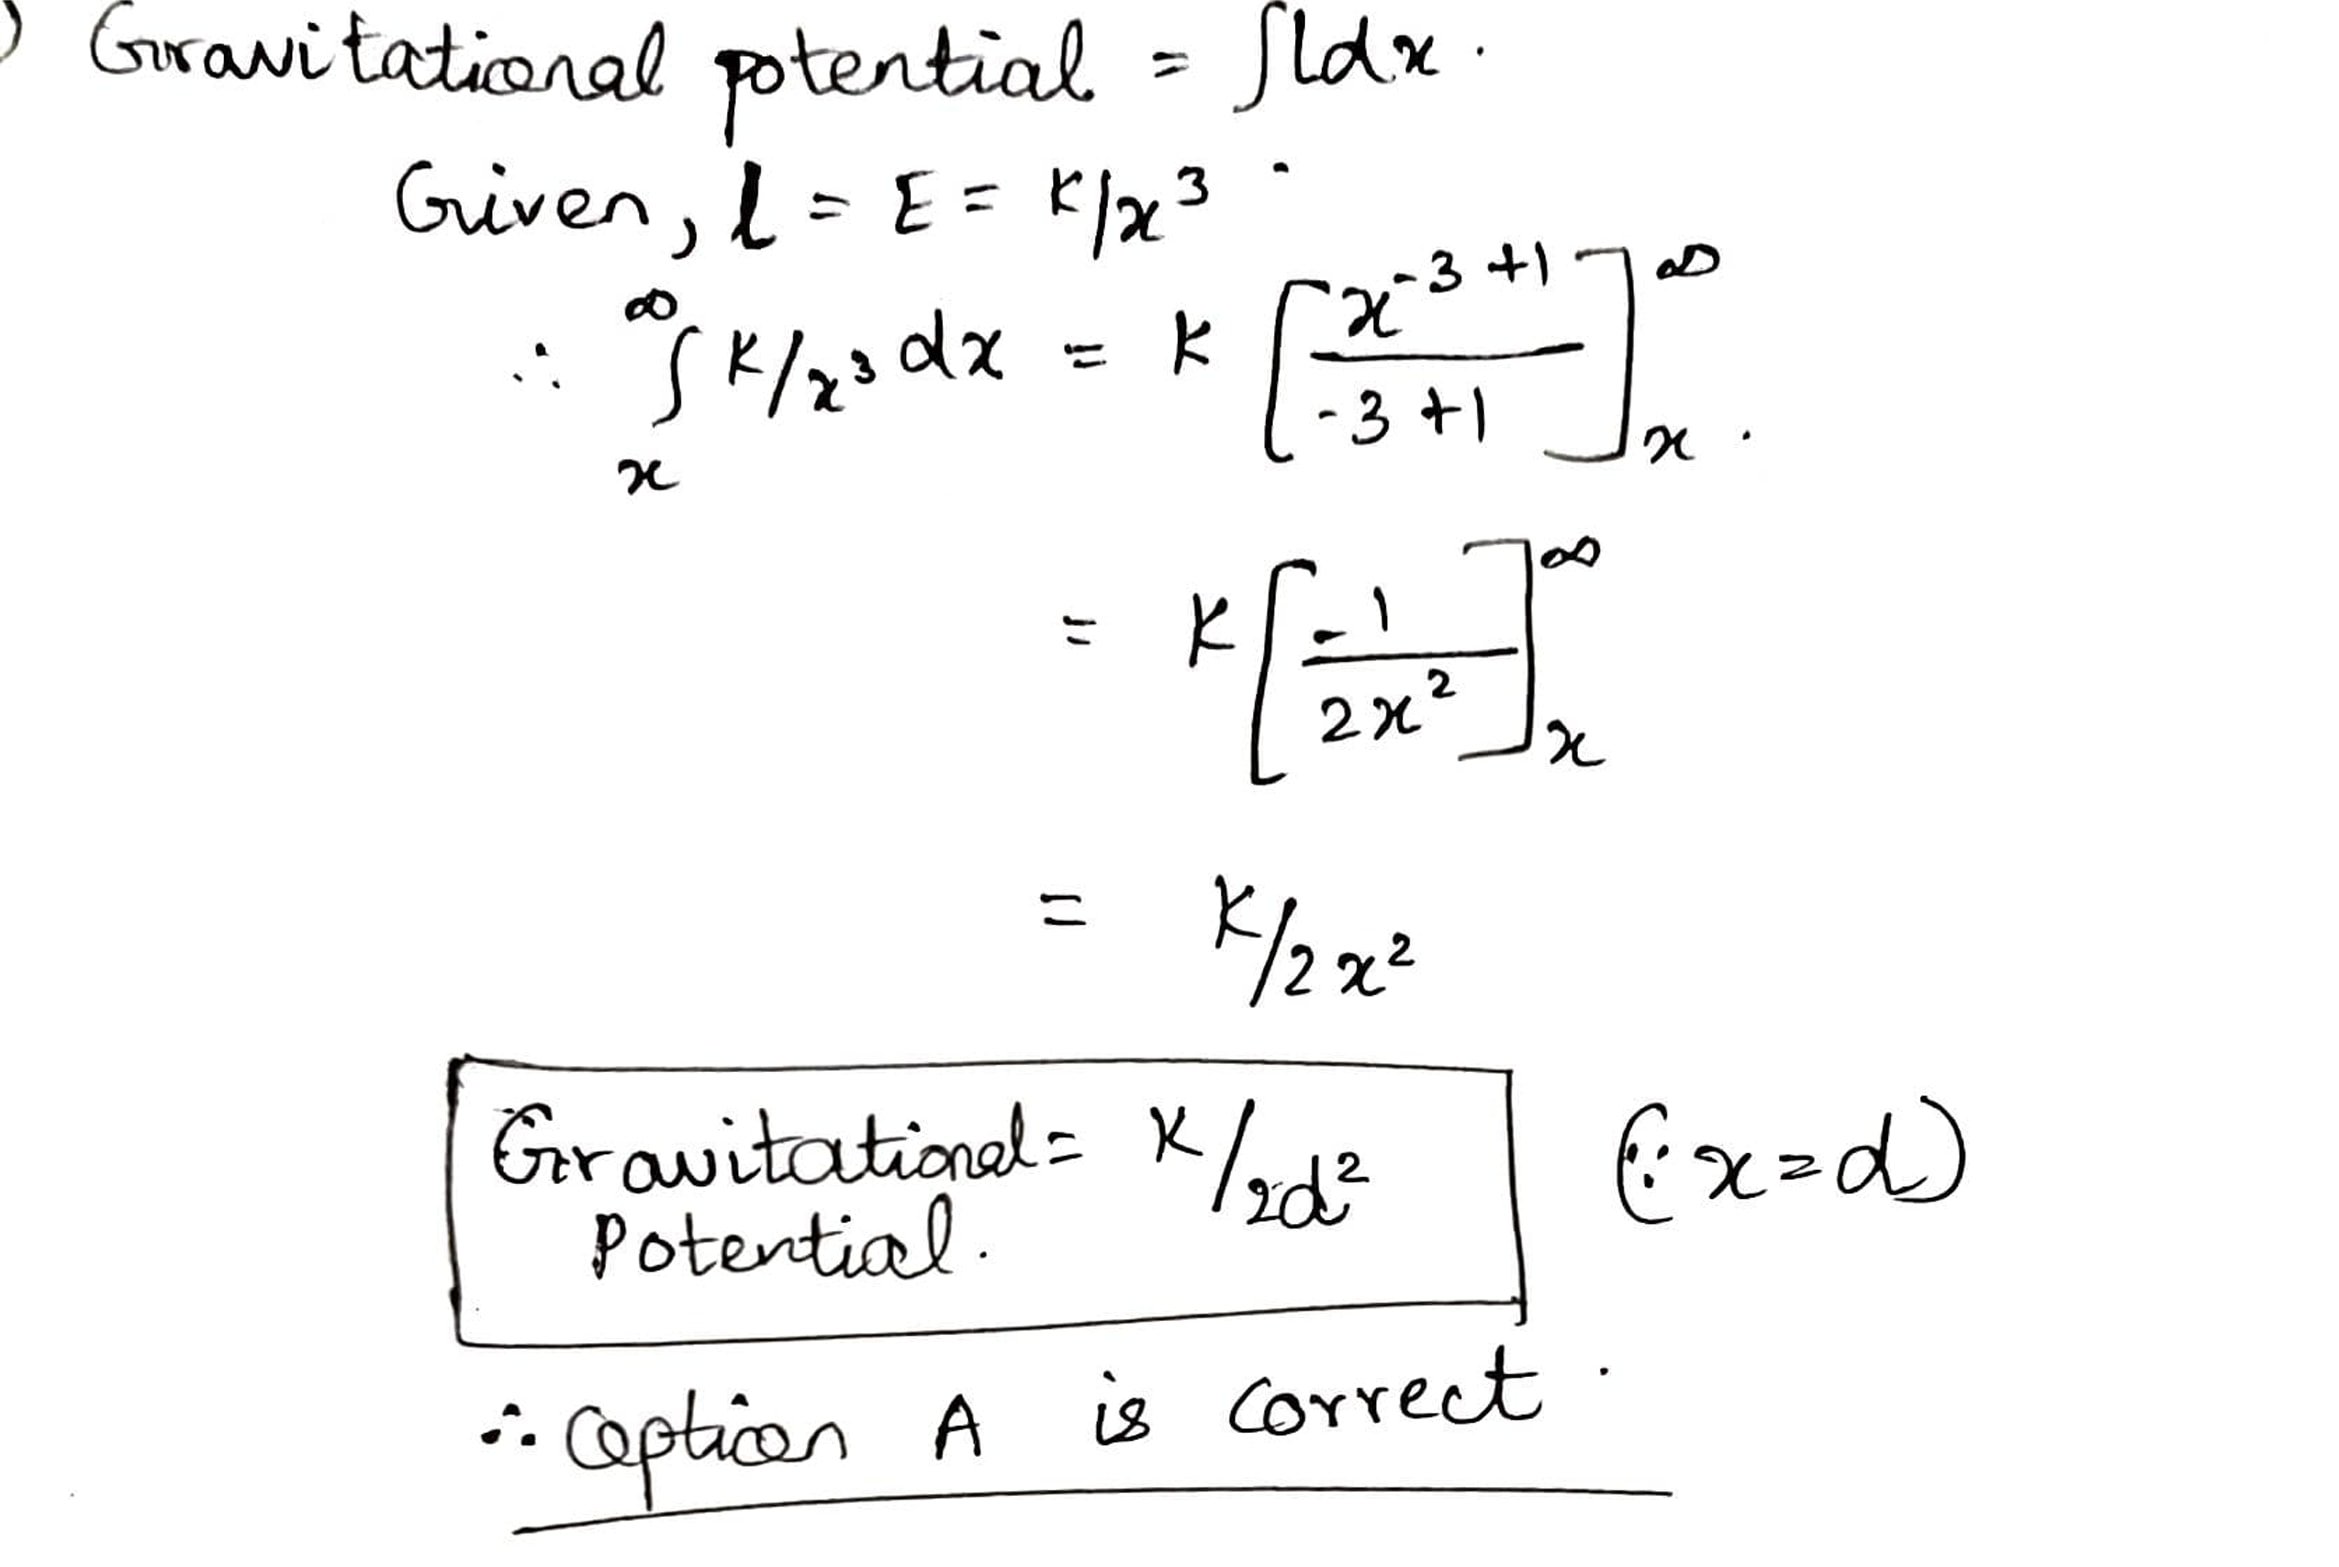 ) Gravitational potential = ∫Idx.
Given, I = E = K/x³.
∴ ∫ₓ^∞ K/x³ dx = K [x⁻³⁺¹ / -3+1]ₓ^∞.
= K [-1 / 2x²]ₓ^∞
= K/2x²
Gravitational = K/2d² (∵ x=d)
Potential.
∴ Option A is correct.